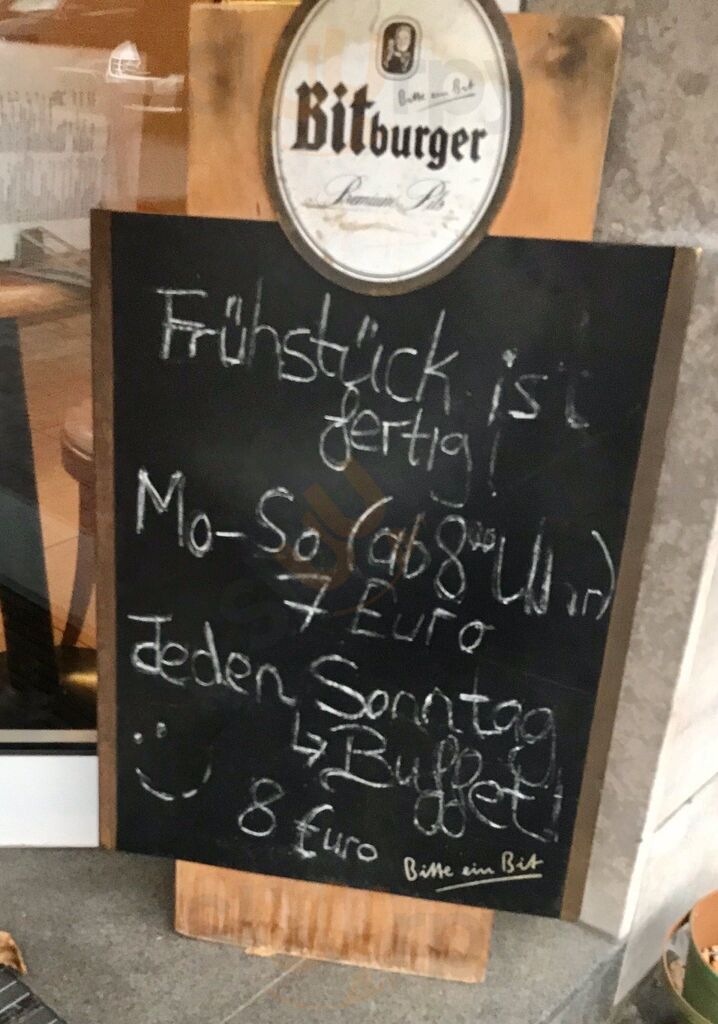 Bitte ein Bit
Bitburger
Premium Pils
Frühstück ist
fertig!
Mo-So (ab 8⁰⁰ Uhr)
7 Euro
Jeden Sonntag
↳ Buffet!
8 Euro
Bitte ein Bit